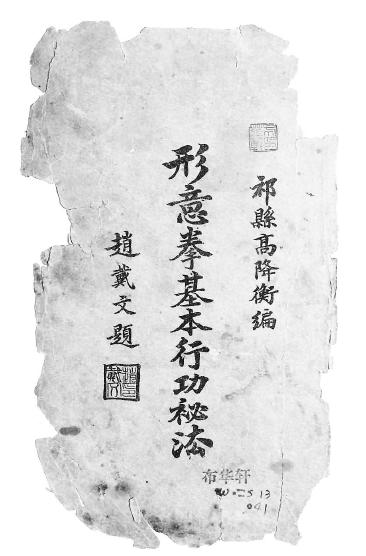 祁縣高降衡編
形意拳基本行功秘法
趙戴文題
布华轩